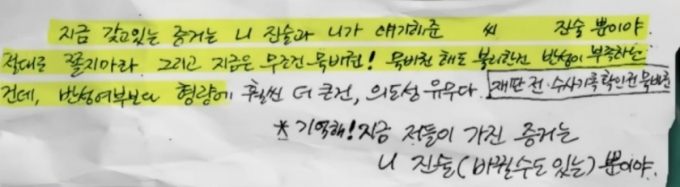 지금 갖고있는 증거는 니 진술과 니가 얘기해준 씨 진술 뿐이야.
절대로 쫄지마라. 그리고 지금은 무조건 묵비권! 묵비권 해도 불리한건 반성이 부족하는
건데, 반성여부보다 형량에 훨씬 더 큰건, 의도성 유무다. 재판 전·수사기록확인전 묵비권
*기억해! 지금 저들이 가진 증거는
니 진술(바뀔수도 있는) 뿐이야.